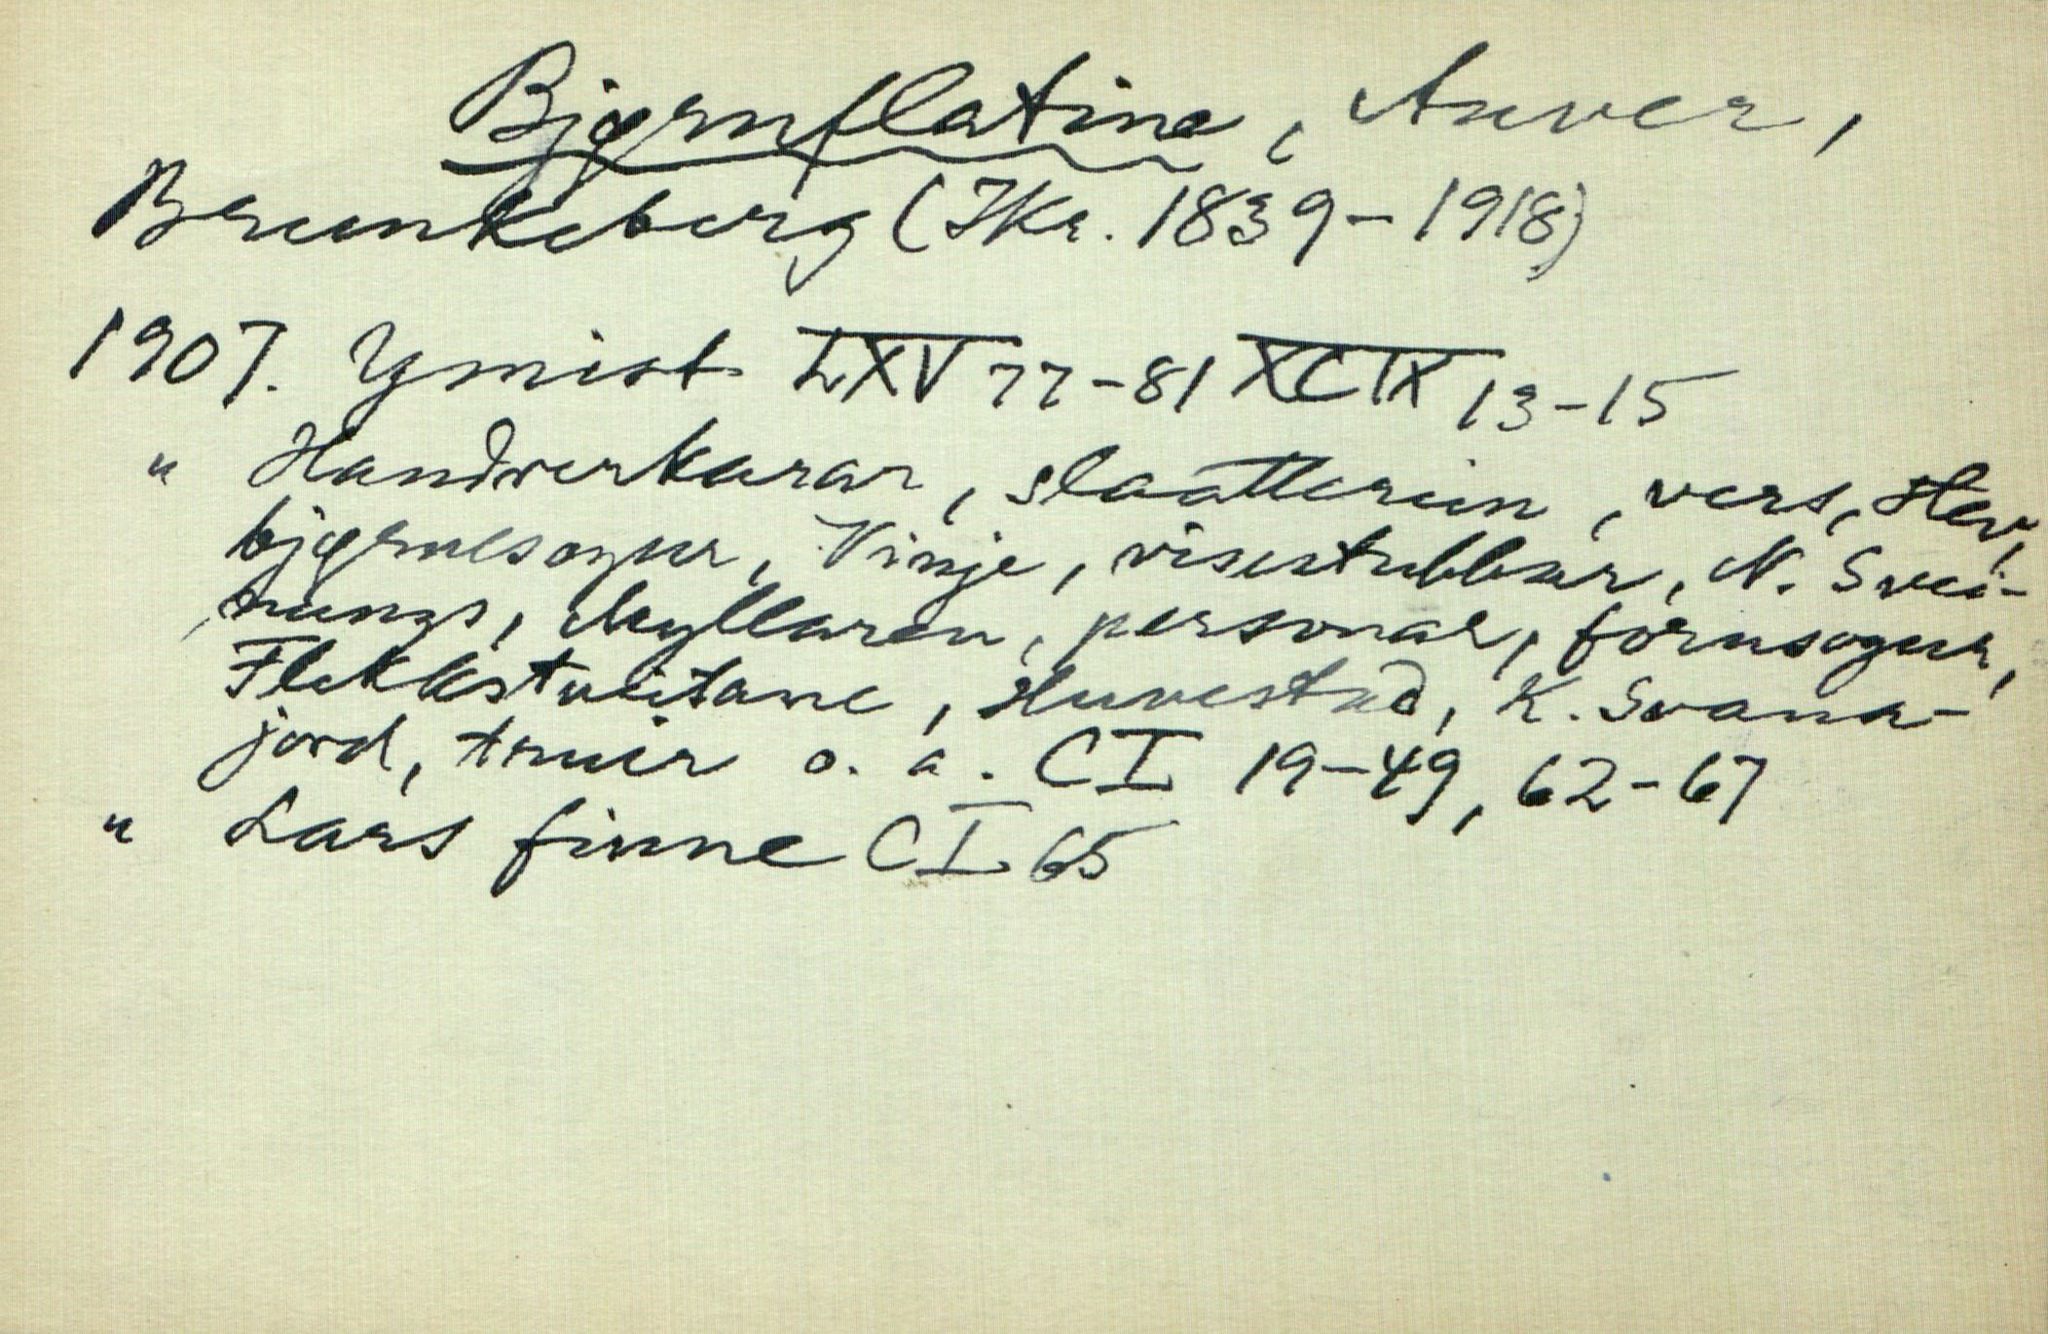 Bjørnflatine, Anver,
Brunkeberg (Tke. 1839-1918)
1907. Ymist LXV 77-81 XCIX 13-15
" Handverkarar, slaatterim, vers, stev,
bjørnesogur, Vinje, visestubbar, N. Svei-
nungs, Myllaren, personar, fornsogur,
Flekkstveitane, Huvestad, K. Svana-
jord, truir o. a. CI 19-49, 62-67
" Lars finne CI 65